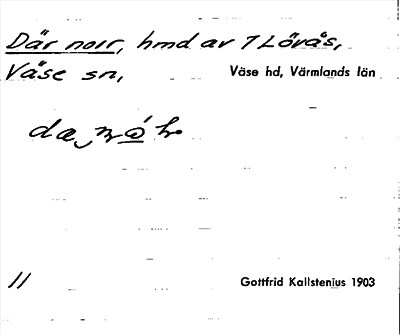 Där norr, hmd av 7 Lövås,
Väse sn, Väse hd, Värmlands län
11 Gottfrid Kallstenius 1903